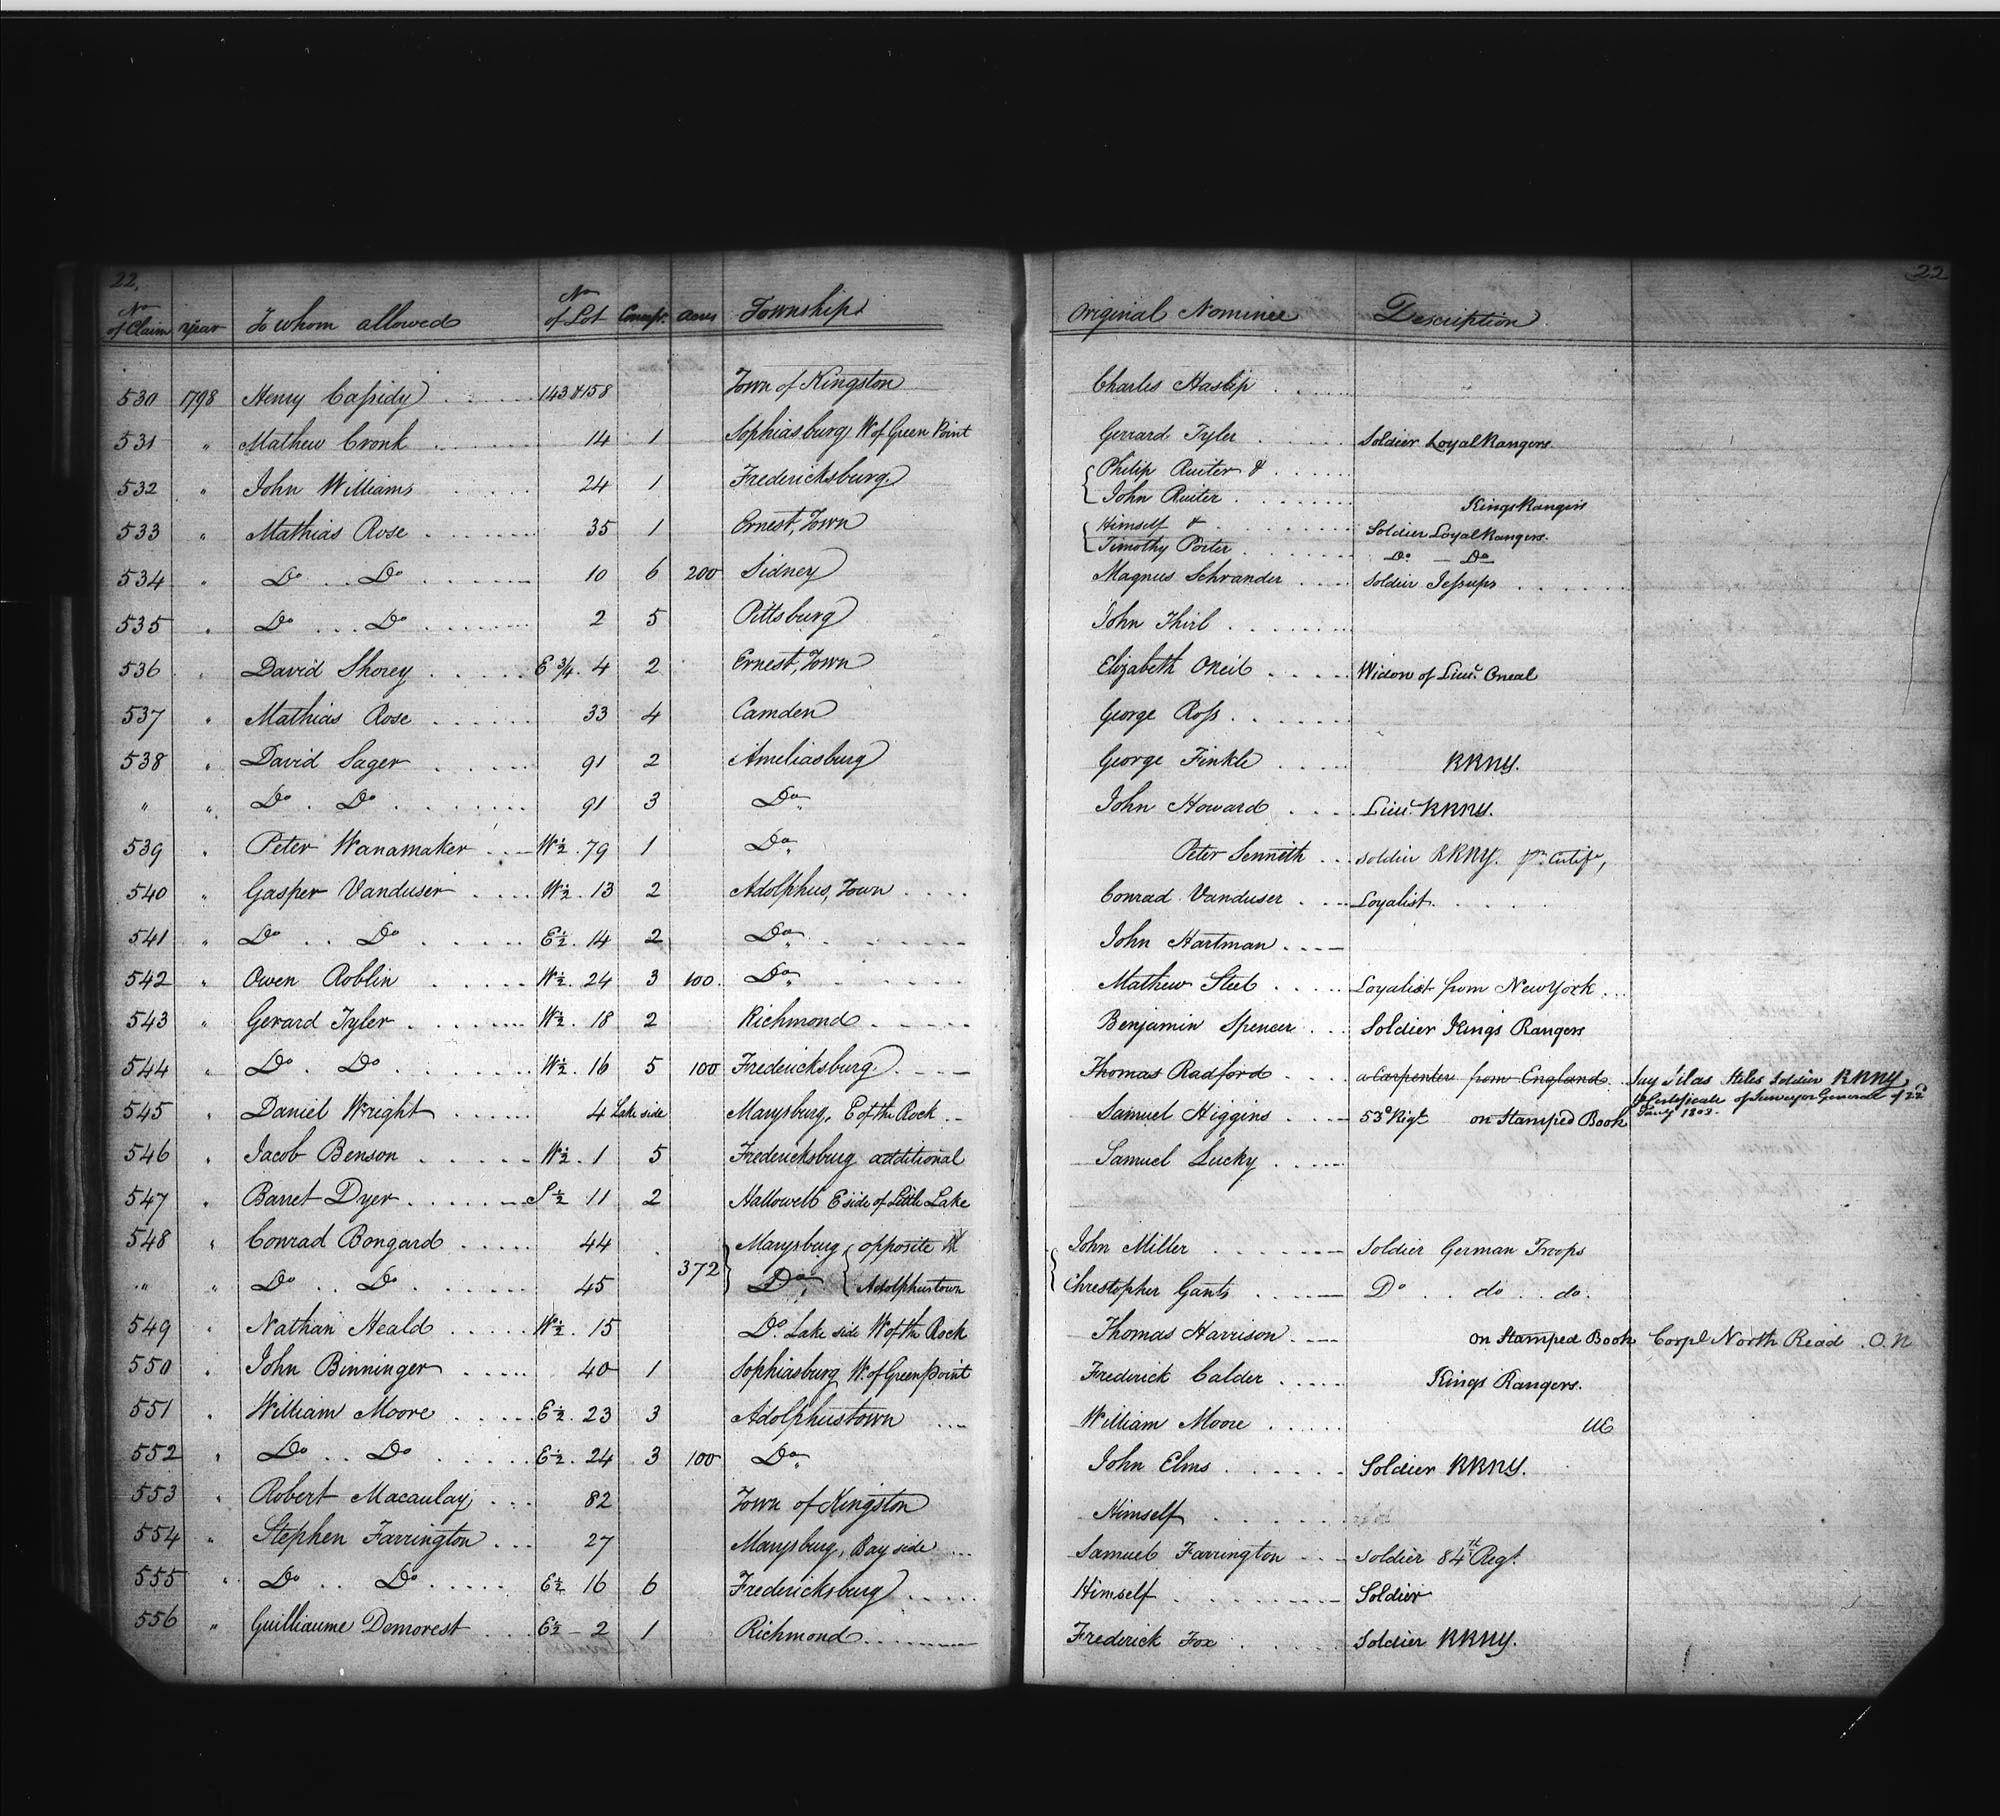 22.
No of Claim year To whom allowed No of Lot Concess. acres Township
530 1798 Henry Cassidy 143 & 158 Town of Kingston
531 " Mathew Cronk 14 1 Sophiasburg W of Green Point
532 " John Williams 24 1 Fredericksburg
533 " Mathias Rose 35 1 Ernest, Town
534 " Do Do 10 6 200 Sidney
535 " Do Do 2 5 Pittsburg
536 " David Shorey E 3/4 4 2 Ernest, Town
537 " Mathias Rose 33 4 Camden
538 " David Sager 91 2 Ameliasburg
" " Do Do 91 3 Do
539 " Peter Wanamaker W 1/2 79 1 Do
540 " Gasper Vanduser W 1/2 13 2 Adolphus, Town
541 " Do Do E 1/2 14 2 Do
542 " Owen Roblin W 1/2 24 3 100 Do
543 " Gerard Tyler W 1/2 18 2 Richmond
544 " Do Do W 1/2 16 5 100 Fredericksburg
545 " Daniel Wright 4 Lake side Marysburg, E of the Rock
546 " Jacob Benson W 1/2 1 5 Fredericksburg additional
547 " Barret Dyer S 1/2 11 2 Hallowell E side of Little Lake
548 " Conrad Bongard 44 372 Marysburg opposite
" " Do Do 45 Do Adolphustown
549 " Nathan Heald W 1/2 15 Do Lake side W of the Rock
550 " John Binninger 40 1 Sophiasburg W. of Green point
551 " William Moore E 1/2 23 3 Adolphustown
552 " Do Do E 1/2 24 3 100 Do
553 " Robert Macaulay 82 Town of Kingston
554 " Stephen Farrington 27 Marysburg, Bay side
555 " Do Do E 1/2 16 6 Fredericksburg
556 " Guilliaume Demorest E 1/2 2 1 Richmond
22
Original Nominee Description
Charles Haslip
Gerrard Tyler Soldier Loyal Rangers.
Philip Ruiter &
John Ruiter Kings Rangers
Himself & Soldier Loyal Rangers.
Timothy Porter Do Do
Magnus Schrander Soldier Jessups
John Thirl
Elizabeth Oneil Widow of Lieut. Oneal
George Ross
George Finkle RRNY.
John Howard Lieut. RRNY.
Peter Senneth soldier RRNY. pr. Certife,
Conrad Vanduser Loyalist
John Hartman
Mathew Steel Loyalist from New York
Benjamin Spencer Soldier Kings Rangers
Thomas Radford a Carpenter from England Say Silas Hiles Soldier RRNY
pr Certificate of Surveyor General of 22d
Samuel Higgins 53d Regt on Stamped Book Jany 1803.
Samuel Lucky
John Miller Soldier German Troops
Chrestopher Gants Do do do.
Thomas Harrison on Stamped Book Corpl North Read O.N
Frederick Calder Kings Rangers.
William Moore UE
John Elms Soldier RRNY.
Himself
Samuel Farrington soldier 84th Regt.
Himself Soldier
Frederick Fox Soldier RRNY.